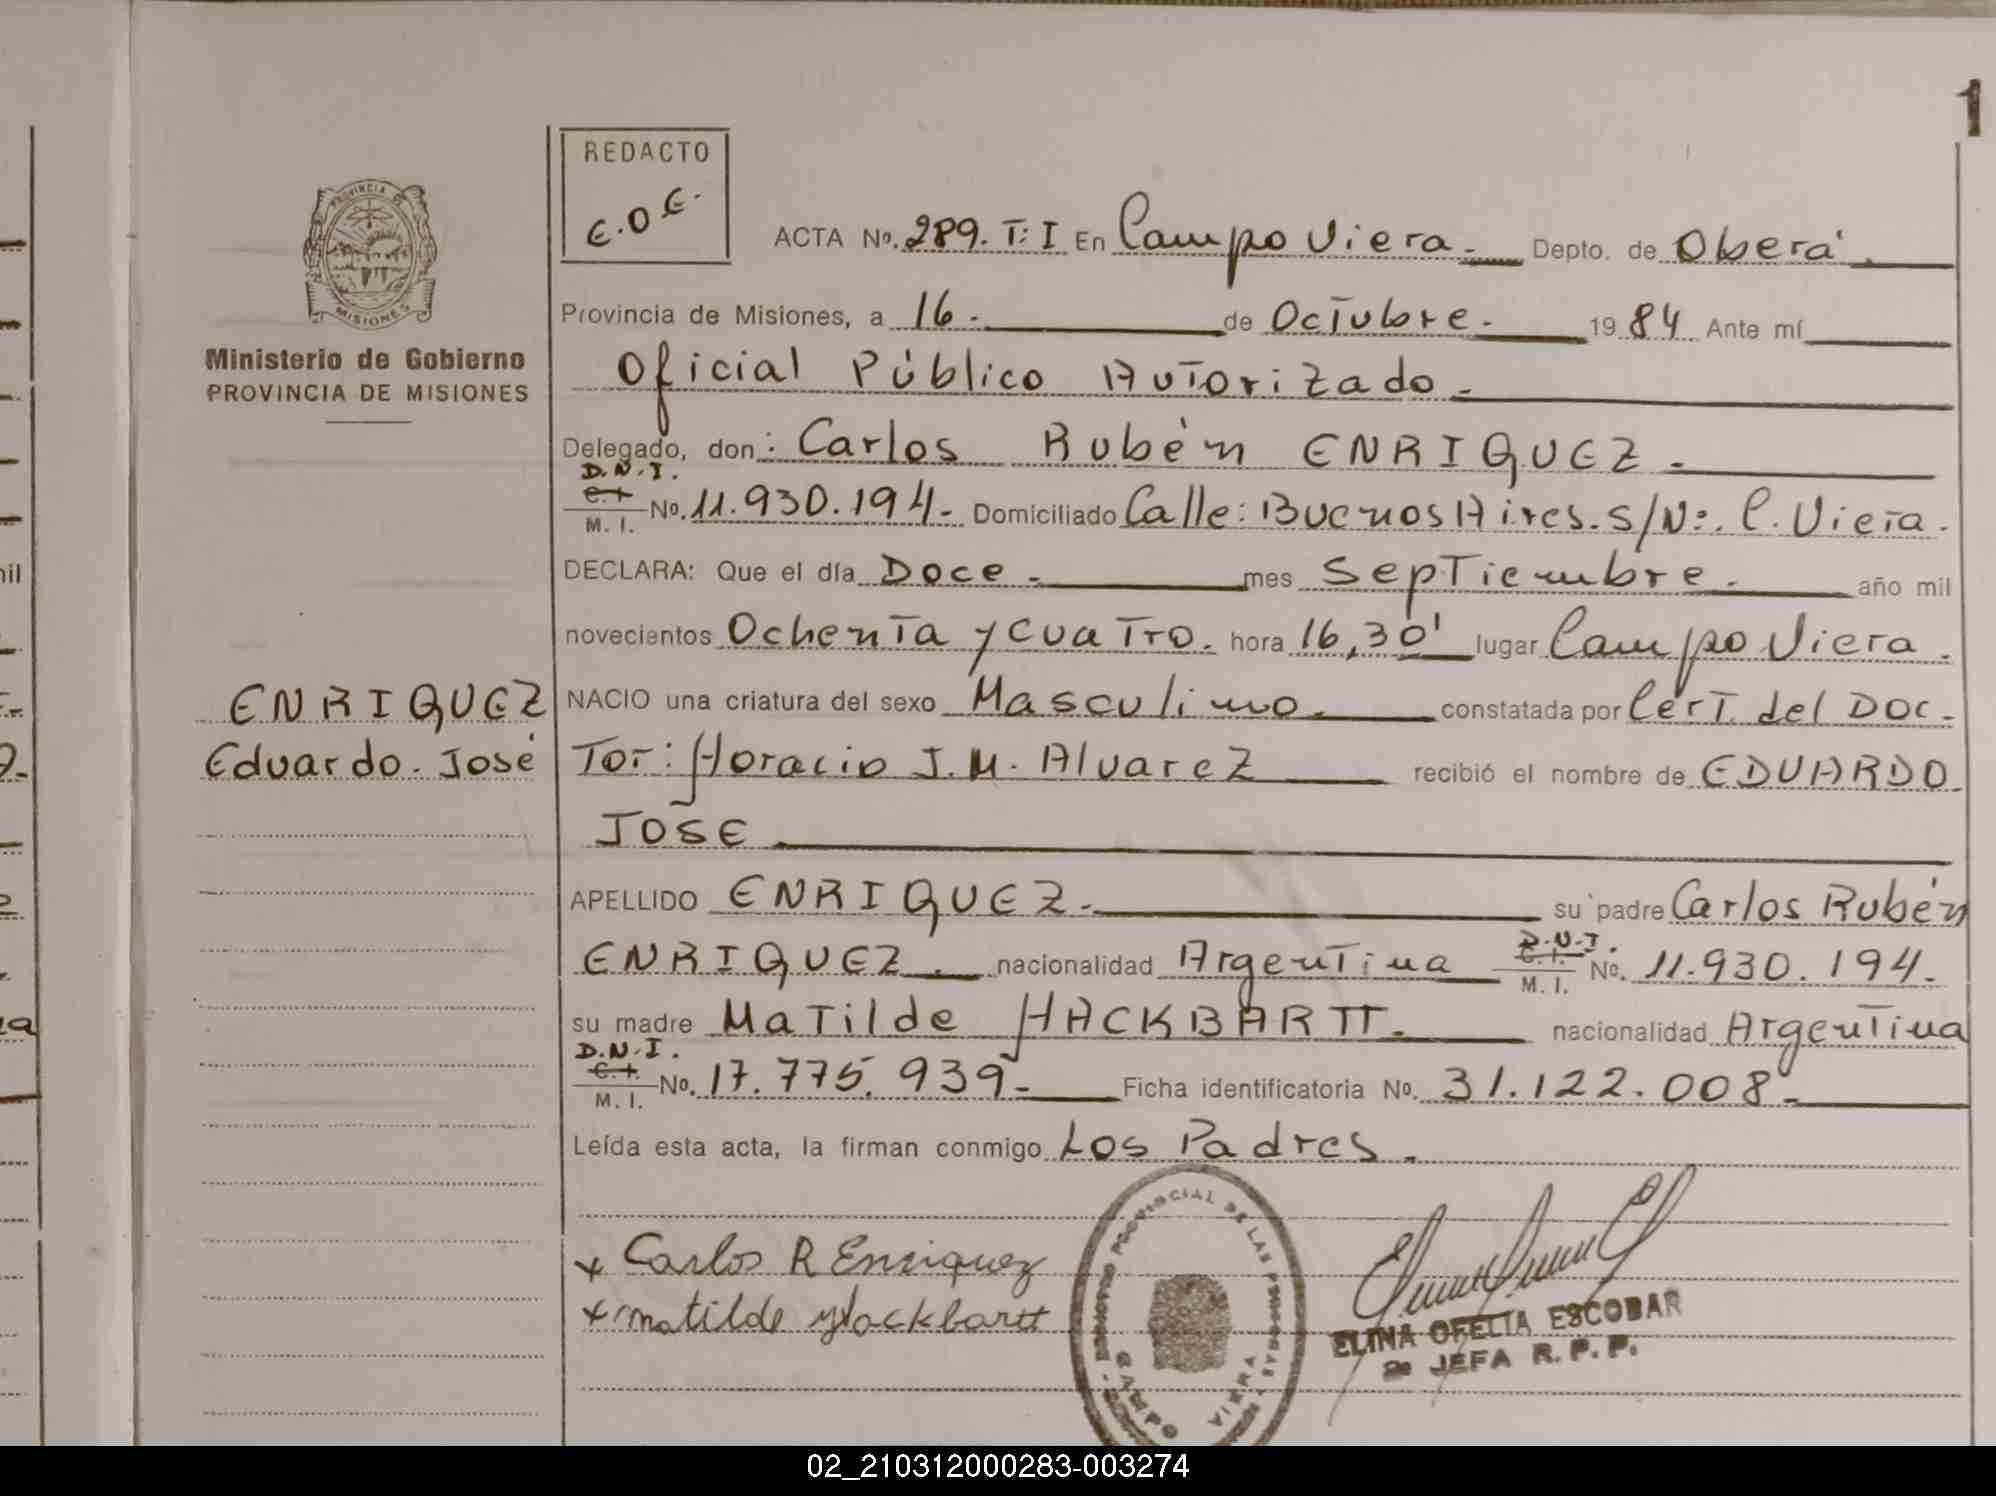 1
REDACTO
E.O.E.
PROVINCIA DE
MISIONES
Ministerio de Gobierno
PROVINCIA DE MISIONES
ENRIQUEZ
Eduardo. José
ACTA No. 289. T: I En Campo Viera. Depto. de Oberá.
Provincia de Misiones, a 16. de Octubre. 1984 Ante mí
Oficial Público Autorizado.
Delegado, don: Carlos Rubén ENRIQUEZ.
D.N.I.
C.I. No. 11.930.194. Domiciliado Calle: Buenos Aires. S/Nº. C. Viera.
M. I.
DECLARA: Que el día Doce. mes Septiembre. año mil
novecientos Ochenta y cuatro. hora 16,30' lugar Campo Viera.
NACIO una criatura del sexo Masculino. constatada por Cert. del Doc-
tor: Horacio J.M. Alvarez recibió el nombre de EDUARDO
JOSE
APELLIDO ENRIQUEZ. su padre Carlos Rubén
ENRIQUEZ. nacionalidad Argentina D.N.I. C.I. No. 11.930.194.
M. I.
su madre Matilde HACKBARTT. nacionalidad Argentina
D.N.I.
C.I. No. 17.775.939- Ficha identificatoria No. 31.122.008-
M. I.
Leída esta acta, la firman conmigo Los Padres.
x Carlos R Enriquez
x Matilde Hackbartt
PROVINCIAL DE LAS PERSONAS
CAMPO VIERA
ELINA OFELIA ESCOBAR
JEFA R. P. P.
02_210312000283-003274